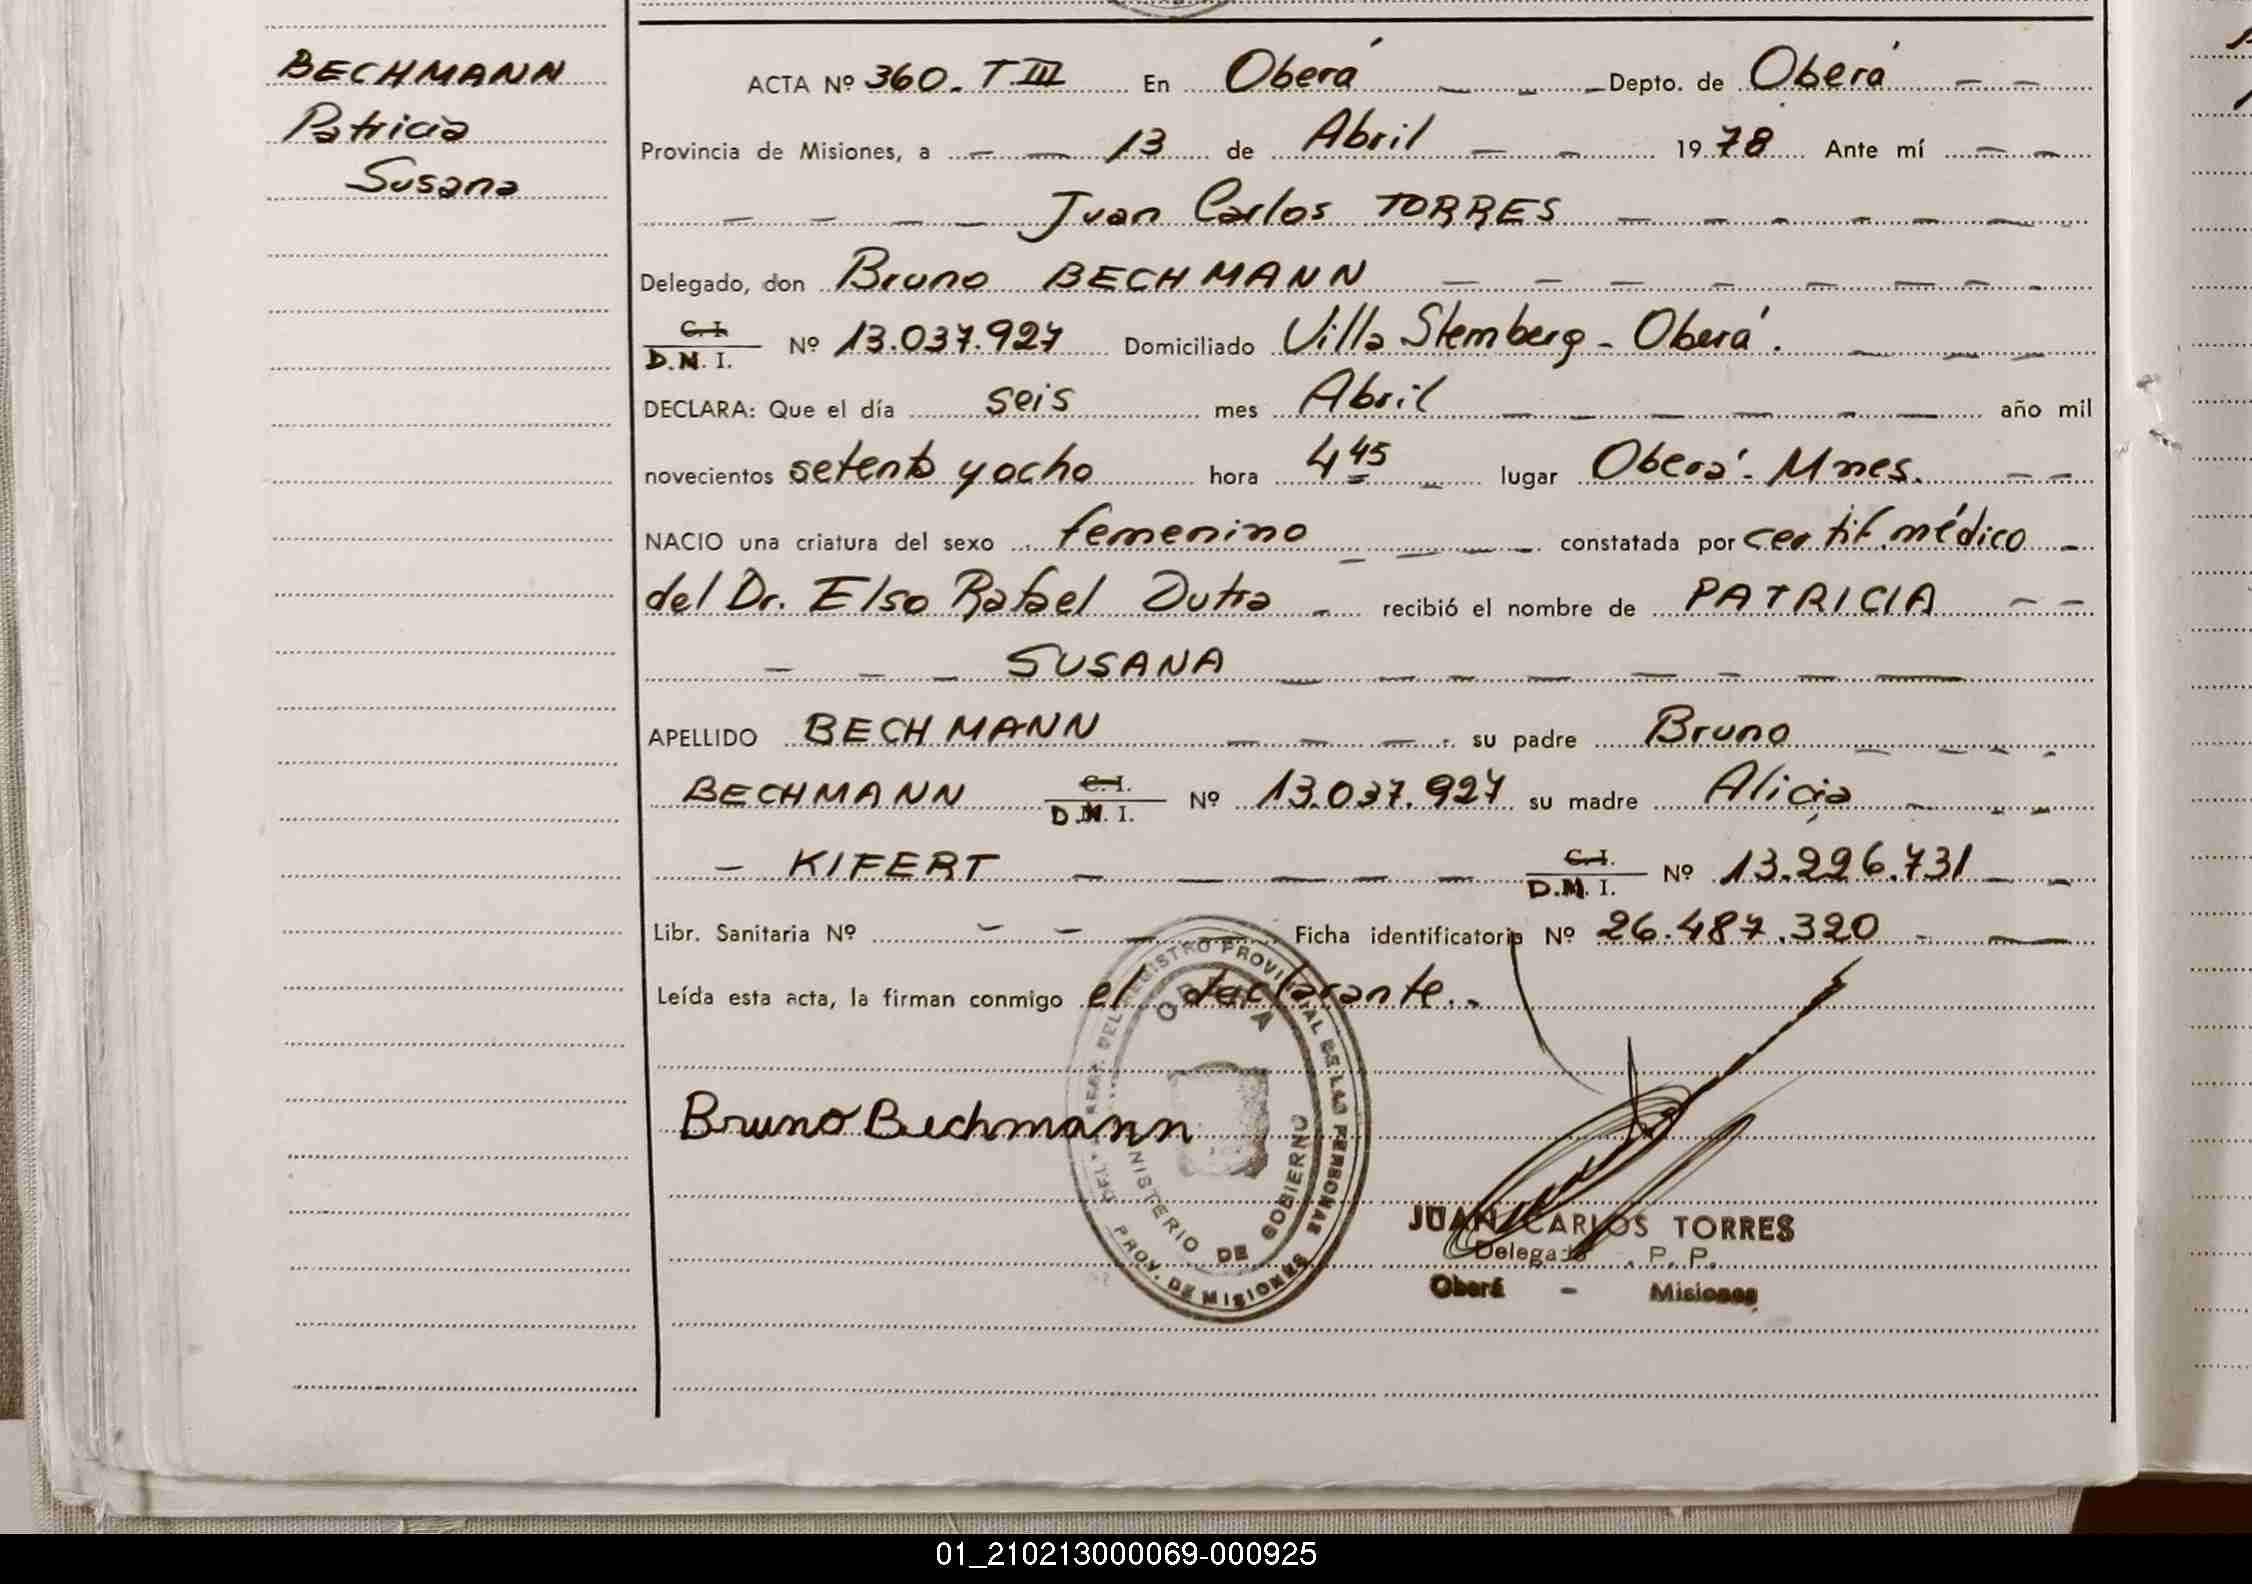 BECHMANN
Patricia
Susana
ACTA Nº 360. T III En Oberá Depto. de Oberá
Provincia de Misiones, a 13 de Abril 1978 Ante mí
Juan Carlos TORRES
Delegado, don Bruno BECHMANN
C. I.
D.N.I. Nº 13.037.927 Domiciliado Villa Stemberg - Oberá.
DECLARA: Que el día seis mes Abril año mil
novecientos setenta y ocho hora 4 45 lugar Oberá - Mnes.
NACIO una criatura del sexo femenino constatada por certif. médico
del Dr. Elso Rafael Dutra recibió el nombre de PATRICIA
SUSANA
APELLIDO BECHMANN su padre Bruno
BECHMANN C. I. D.N.I. Nº 13.037.927 su madre Alicia
KIFERT C. I. D.N.I. Nº 13.226.731
Libr. Sanitaria Nº Ficha identificatoria Nº 26.487.320
Leída esta acta, la firman conmigo el declarante.
Bruno Bechmann
REGISTRO PROVINCIAL DE LAS PERSONAS
MINISTERIO DE GOBIERNO
PROV. DE MISIONES
JUAN CARLOS TORRES
Delegado P. P.
Oberá - Misiones
01_210213000069-000925